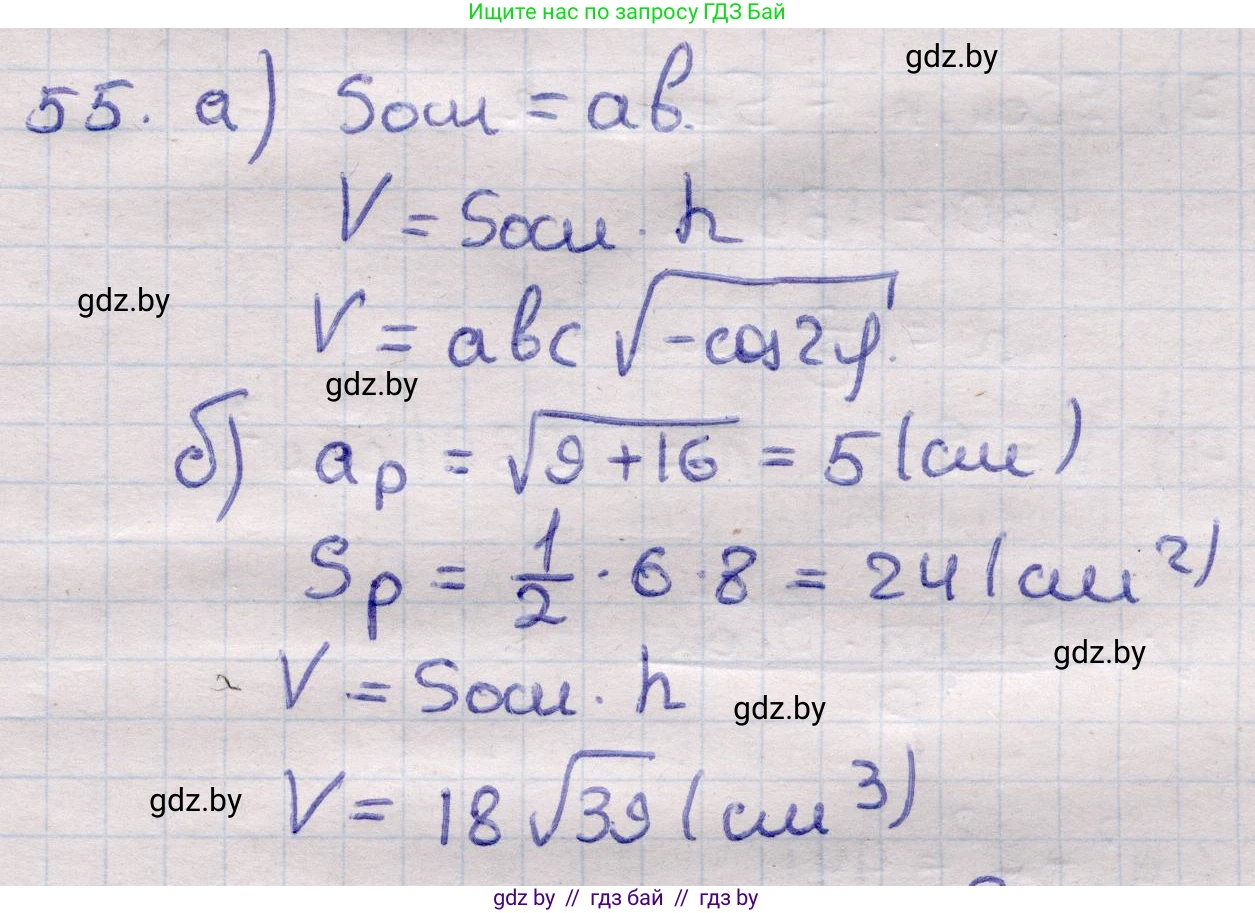 Ищите нас по запросу ГДЗ Бай
gdz.by
55. а) Sосн = ab.
V = Sосн · h
gdz.by
V = abc √-cos2φ.
gdz.by
б) aр = √9+16 = 5 (см)
Sр = 1/2 · 6 · 8 = 24 (см²)
gdz.by
V = Sосн · h
gdz.by
gdz.by
V = 18 √39 (см³)
gdz.by // гдз бай // гдз by